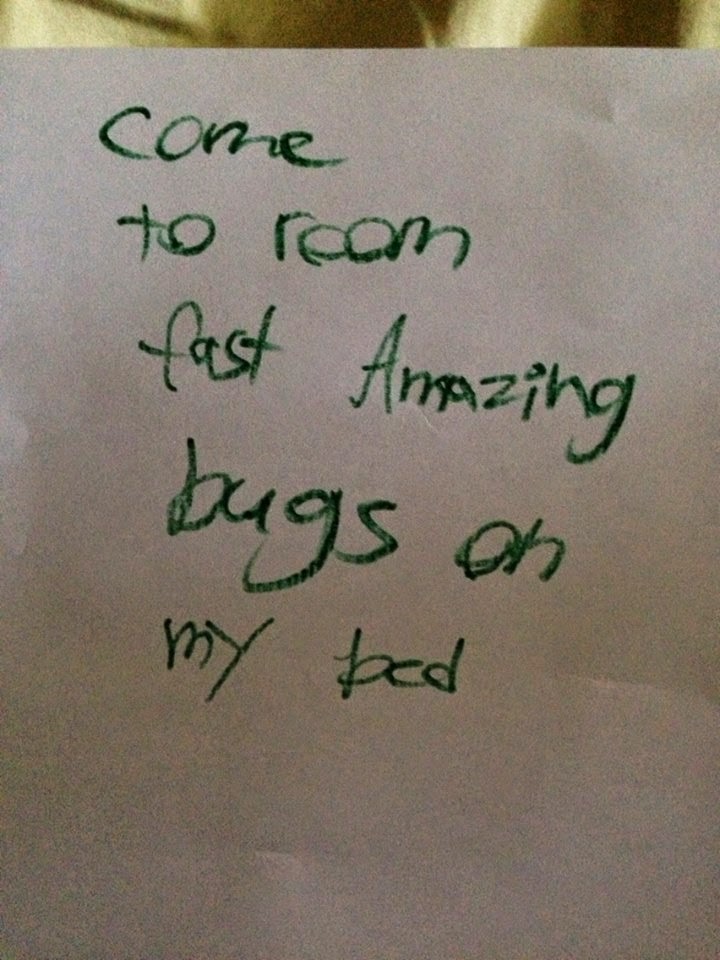 Come
to room
fast Amazing
bugs on
my bed